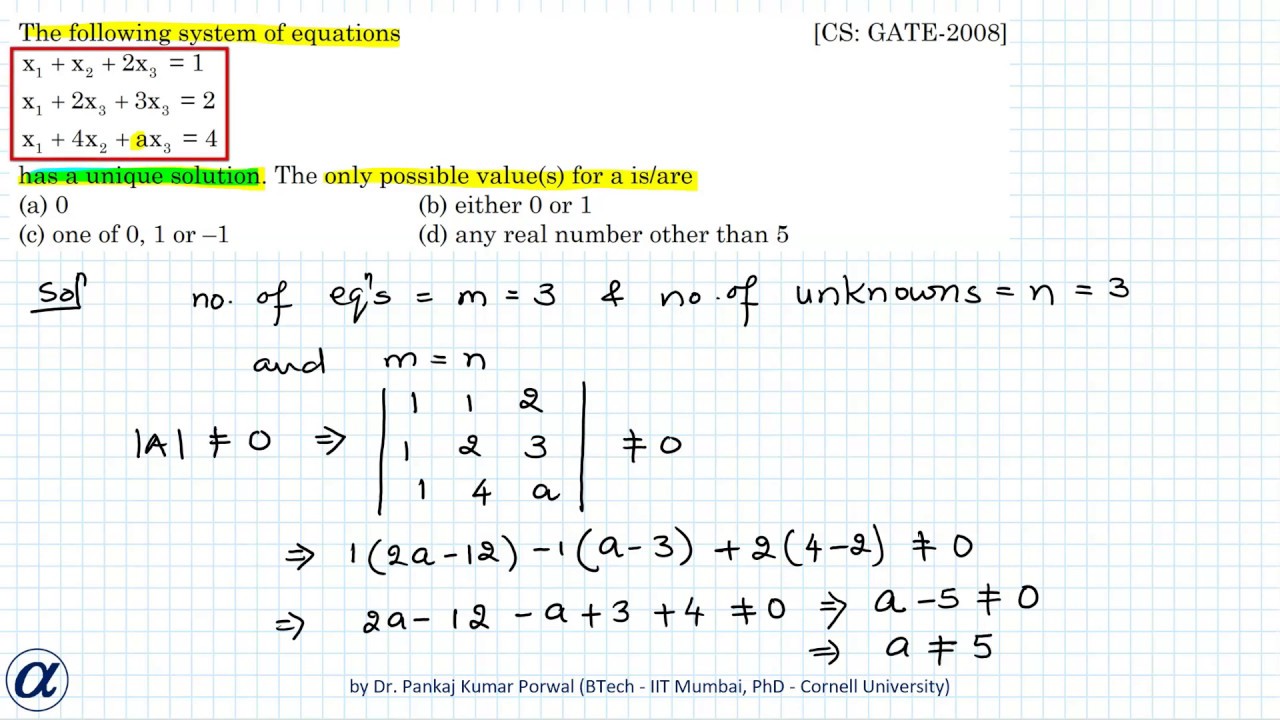 The following system of equations [CS: GATE-2008]
x₁ + x₂ + 2x₃ = 1
x₁ + 2x₃ + 3x₃ = 2
x₁ + 4x₂ + ax₃ = 4
has a unique solution. The only possible value(s) for a is/are
(a) 0 (b) either 0 or 1
(c) one of 0, 1 or –1 (d) any real number other than 5
Sol no. of eqⁿs = m = 3 & no. of unknowns = n = 3
and m = n
1 1 2
|A| ≠ 0 ⇒ 1 2 3 ≠ 0
1 4 a
⇒ 1(2a-12) -1(a-3) + 2(4-2) ≠ 0
⇒ 2a - 12 - a + 3 + 4 ≠ 0 ⇒ a - 5 ≠ 0
⇒ a ≠ 5
α by Dr. Pankaj Kumar Porwal (BTech - IIT Mumbai, PhD - Cornell University)